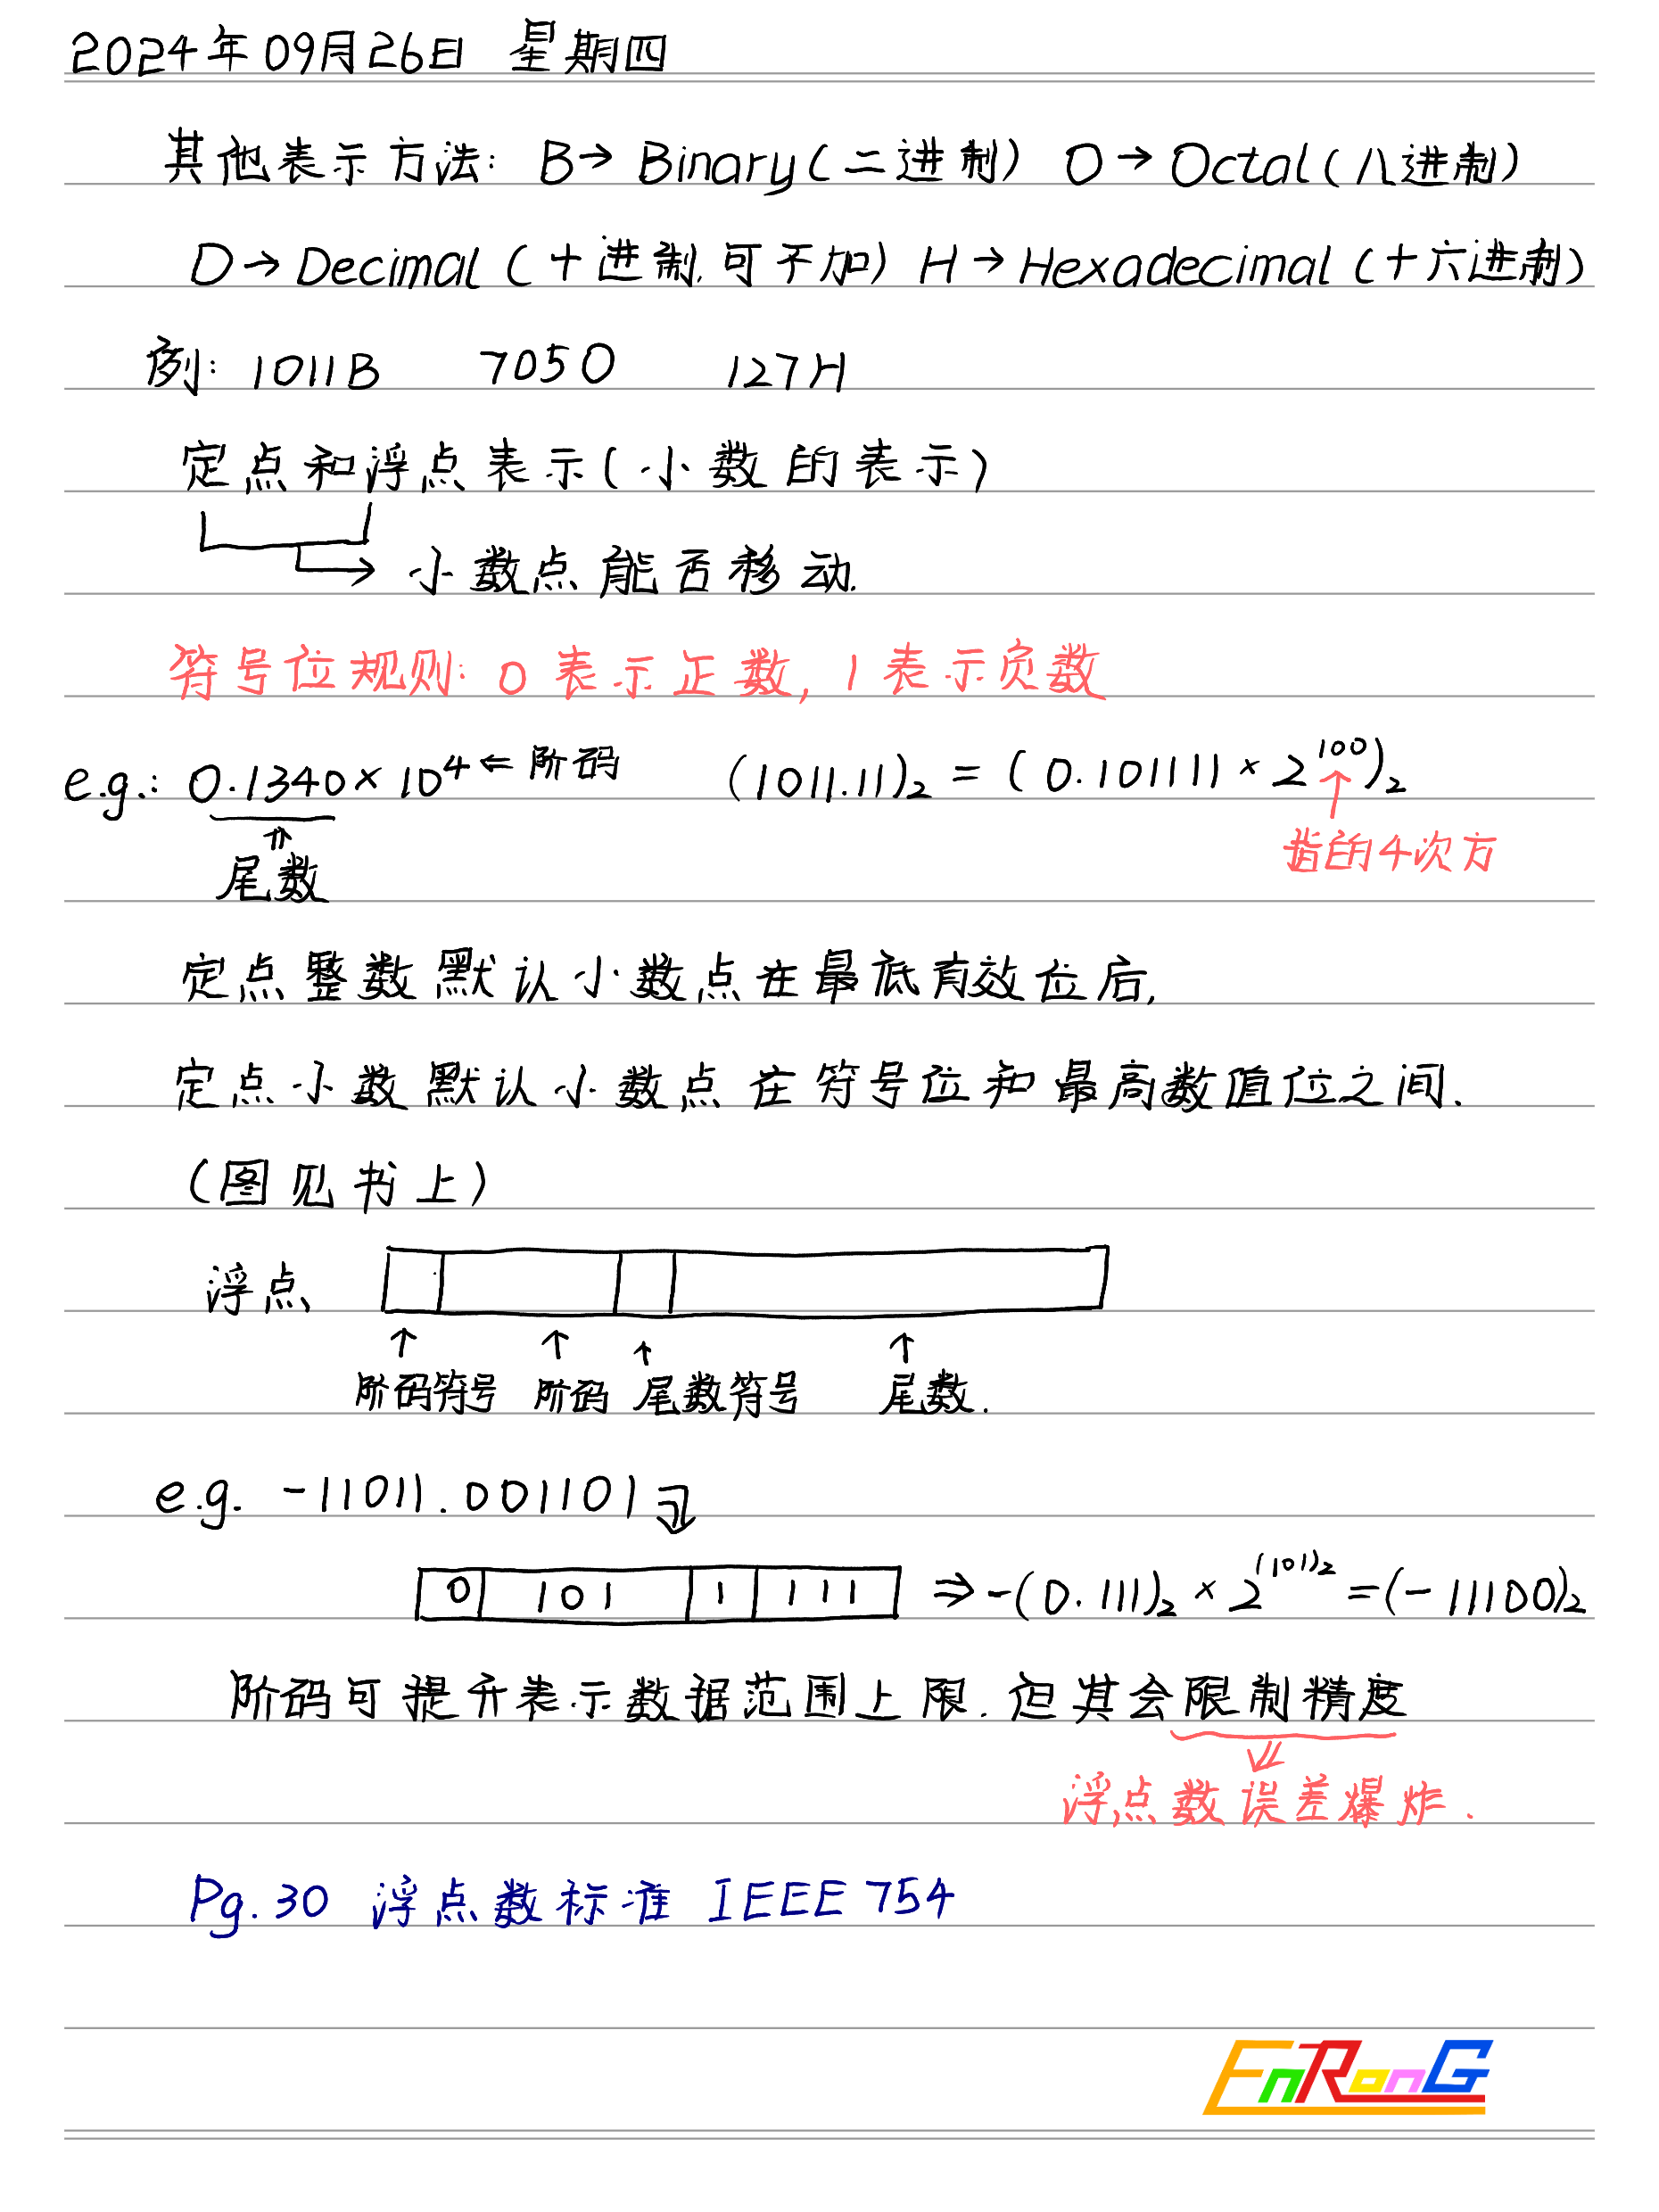 2024年09月26日 星期四
其他表示方法: B→Binary(二进制) O→Octal(八进制)
D→Decimal(十进制,可不加) H→Hexadecimal(十六进制)
例: 1011B 705O 127H
定点和浮点表示(小数的表示)
→小数点能否移动.
符号位规则: 0表示正数, 1表示负数
e.g.: 0.1340×10⁴ ⇐ 阶码 (1011.11)₂ = (0.101111×2¹⁰⁰)₂
⇑ ↑
尾数 指的4次方
定点整数默认小数点在最低有效位后,
定点小数默认小数点在符号位和最高数值位之间.
(图见书上)
浮点
↑ ↑ ↑ ↑
阶码符号 阶码 尾数符号 尾数.
e.g. -11011.001101
0 101 1 111 ⇒ -(0.111)₂×2⁽¹⁰¹⁾₂ =(-11100)₂
阶码可提升表示数据范围上限.但其会限制精度
浮点数误差爆炸.
Pg.30 浮点数标准 IEEE 754
EnRonG